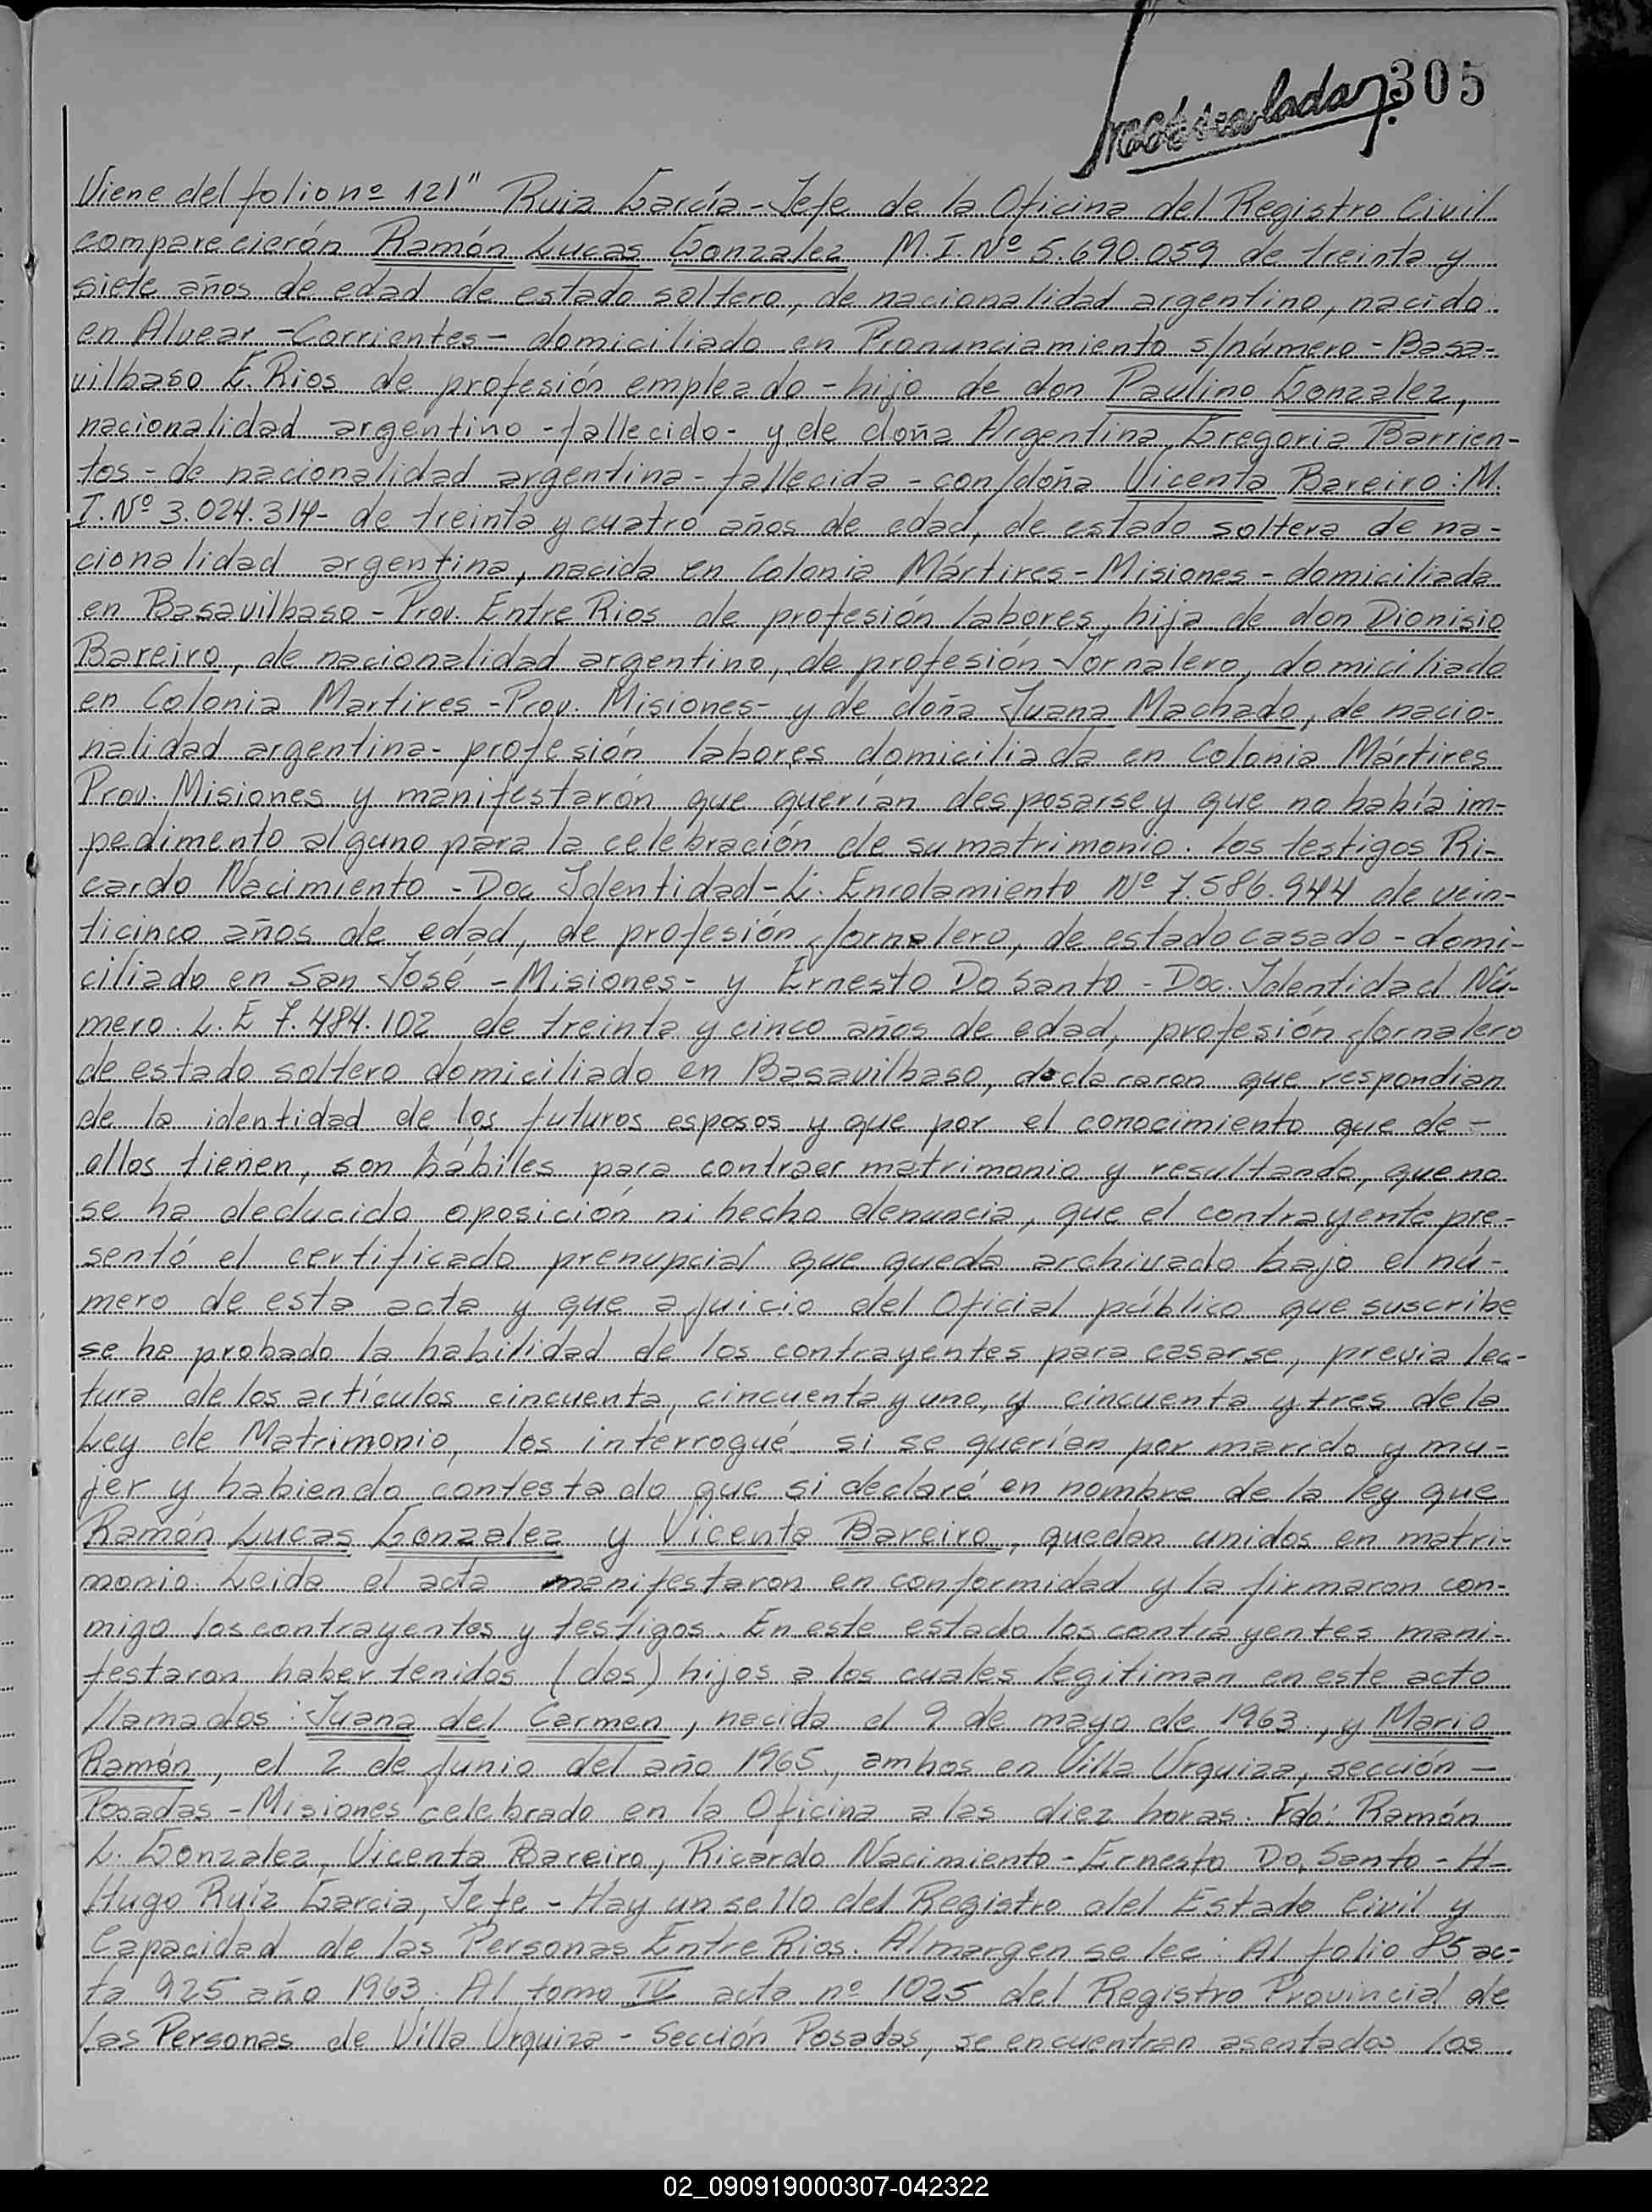 305
Viene del folio nº 121" Ruiz García - Jefe de la Oficina del Registro Civil
comparecierón Ramón Lucas Gonzalez M.I. Nº 5.690.059 de treinta y
siete años de edad de estado soltero, de nacionalidad argentino, nacido
en Alvear - Corrientes - domiciliado en Pronunciamiento s/número - Basa-
vilbaso E. Rios de profesión empleado - hijo de don Paulino Gonzalez,
nacionalidad argentino - fallecido - y de doña Argentina Gregoria Barrien-
tos - de nacionalidad argentina - fallecida - con/doña Vicenta Bareiro: M.
I. Nº 3.024.314 - de treinta y cuatro años de edad, de estado soltera de na-
cionalidad argentina, nacida en Colonia Mártires - Misiones - domiciliada
en Basavilbaso - Prov. Entre Rios de profesión labores, hija de don Dionisio
Bareiro, de nacionalidad argentino, de profesión Jornalero, domiciliado
en Colonia Martires - Prov. Misiones - y de doña Juana Machado, de nacio-
nalidad argentina - profesión labores domiciliada en Colonia Mártires
Prov. Misiones y manifestarón que querían desposarse y que no había im-
pedimento alguno para la celebración de su matrimonio. Los testigos Ri-
cardo Nacimiento - Doc Identidad - L. Enrolamiento Nº 7.586.944 de vein-
ticinco años de edad, de profesión Jornalero, de estado casado - domi-
ciliado en San José - Misiones - y Ernesto Do Santo - Doc. Identidad Nú-
mero L. E 7.484.102 de treinta y cinco años de edad, profesión Jornalero
de estado soltero domiciliado en Basavilbaso, declararon que respondían
de la identidad de los futuros esposos y que por el conocimiento que de -
ellos tienen, son hábiles para contraer matrimonio y resultando, que no
se ha deducido oposición ni hecho denuncia, que el contrayente pre-
sentó el certificado prenupcial que queda archivado bajo el nú-
mero de esta acta y que a juicio del Oficial público que suscribe
se ha probado la habilidad de los contrayentes para casarse, previa lec-
tura de los artículos cincuenta, cincuenta y uno, y cincuenta y tres de la
Ley de Matrimonio, los interrogué si se querían por marido y mu-
jer y habiendo contestado que si declaré en nombre de la ley que
Ramón Lucas Gonzalez y Vicenta Bareiro, quedan unidos en matri-
monio. Leida el acta manifestaron en conformidad y la firmaron con-
migo los contrayentes y testigos. En este estado los contrayentes mani-
festaron haber tenidos (dos) hijos a los cuales legitiman en este acto
llamados: Juana del Carmen, nacida el 9 de mayo de 1963., y Mario
Ramón, el 2 de Junio del año 1965, ambos en Villa Urquiza, sección -
Posadas - Misiones celebrado en la Oficina a las diez horas. Fdo: Ramón
L. Gonzalez, Vicenta Bareiro, Ricardo Nacimiento - Ernesto Do Santo - H-
Hugo Ruiz Garcia, Jefe - Hay un sello del Registro del Estado Civil y
Capacidad de las Personas Entre Rios. Al margen se lee: Al folio 85 ac-
ta 925 año 1963. Al tomo IV acta nº 1025 del Registro Provincial de
las Personas de Villa Urquiza - Sección Posadas, se encuentran asentados los
02_090919000307-042322